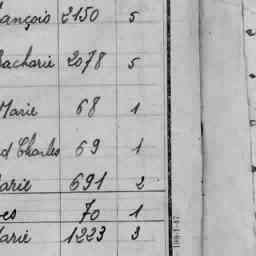 ançois 2150 5
acharie 2078 5
Marie 68 1
d Charles 69 1
arie 691 2
es 70 1
arie 1223 3